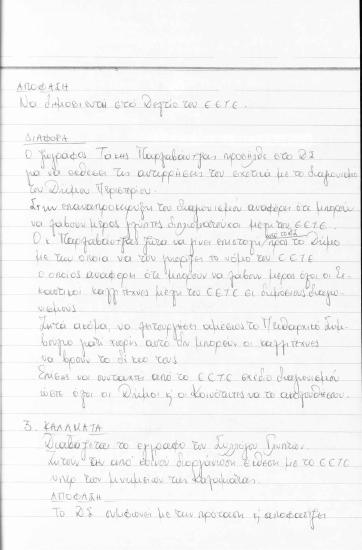 ΑΠΟΦΑΣΗ
Να δημοσιευτη στο Δελτίο του ΕΕΤΕ.
ΔΙΑΦΟΡΑ
Ο ζωγράφος Τάκης Παρλαβάντζας προσήλθε στο ΔΣ
για να εκθέσει τις αντιρρήσεις του σχετικά με το διαγωνισμό
του Δήμου Περιστερίου.
Στην επαναπροκήρυξη του διαγωνισμού αναφέρει ότι μπορούν
να λάβουν μέρος γλύπτες μέλη του ΕΕΤΕ.
Ο κ. Παρλαβάντζας ζητά να γίνει επιστολή προς το Δήμο
με την οποία να του γνωρίζει το νόμο του ΕΕΤΕ
ο οποίος αναφέρει ότι μπορούν να λάβουν μέρος όλοι οι Ει-
καστικοί καλλιτέχνες μέλη του ΕΕΤΕ σε δημόσιους διαγω-
νισμους
Ζητά ακόμα, να λειτουργήσει αμέσως το Πειθαρχικό Συμ-
βούλιο γιατί χωρίς αυτό δεν μπορούν οι καλλιτέχνες
να βρουν το δίκιο τους
Επίσης να συνταχτεί από το ΕΕΤΕ σχέδιο διαγωνισμού
ώστε όλοι οι Δήμοι ή οι Κοινότητες να το ακολουθήσουν.
3. ΚΑΛΑΜΑΤΑ
Διαβάζεται το έγγραφο του Συλλόγου Γλυπτών.
Ζητούν την από κοινού διοργάνωση έκθεση με το ΕΕΤΕ
υπέρ των μνημείων της Καλαμάτας.
ΑΠΟΦΑΣΗ
Το ΔΣ συμφωνεί με την πρόταση & αποφασίζει